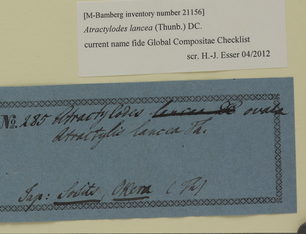 [M-Bamberg inventory number 21156]
Atractylodes lancea (Thunb.) DC.
current name fide Global Compositae Checklist
scr. H.-J. Esser 04/2012
No. 285 Atractylodes lancea DC ovata
Atractylis lancea Th.
Jap: Solits Okera (Th)